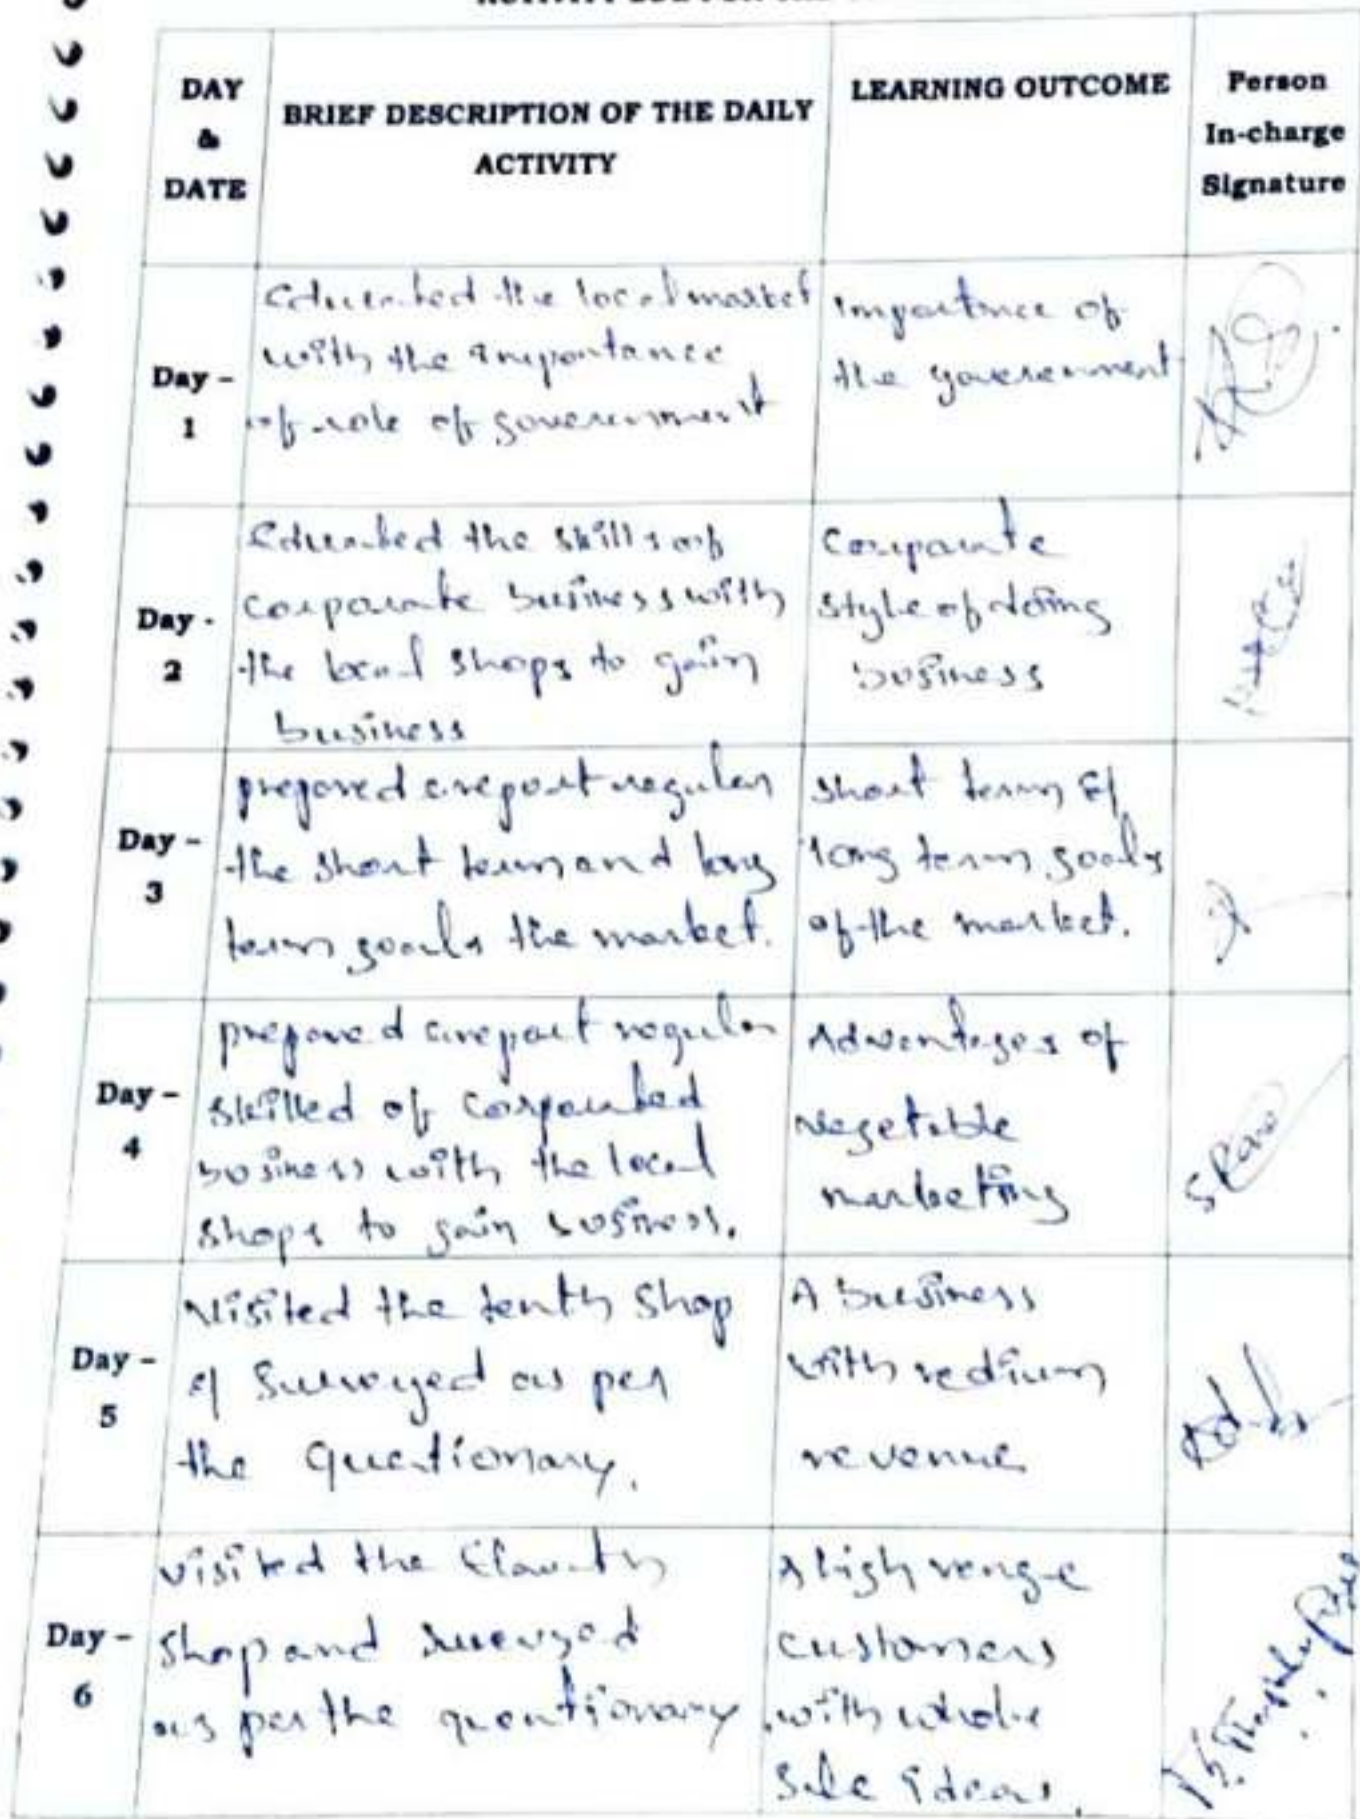 DAY & DATE
BRIEF DESCRIPTION OF THE DAILY ACTIVITY
LEARNING OUTCOME
Person In-charge Signature
Day - 1
Educated the local market
with the importance
of role of government
importance of
the government
Day - 2
Educated the skills of
corporate business with
the local shops to gain
business
Corporate
style of doing
business
Day - 3
prepared a report regular
the short term and long
term goals the market.
short term &
long term goals
of the market.
Day - 4
prepared a report regular
skilled of corporated
business with the local
shops to gain business.
Advantages of
vegetable
marketing
Day - 5
visited the tenth shop
& Surveyed as per
the Questionary.
A business
with redium
revenue
Day - 6
visited the
shop and
as per the questionary
A high range
customers
with whole
sale ideas.